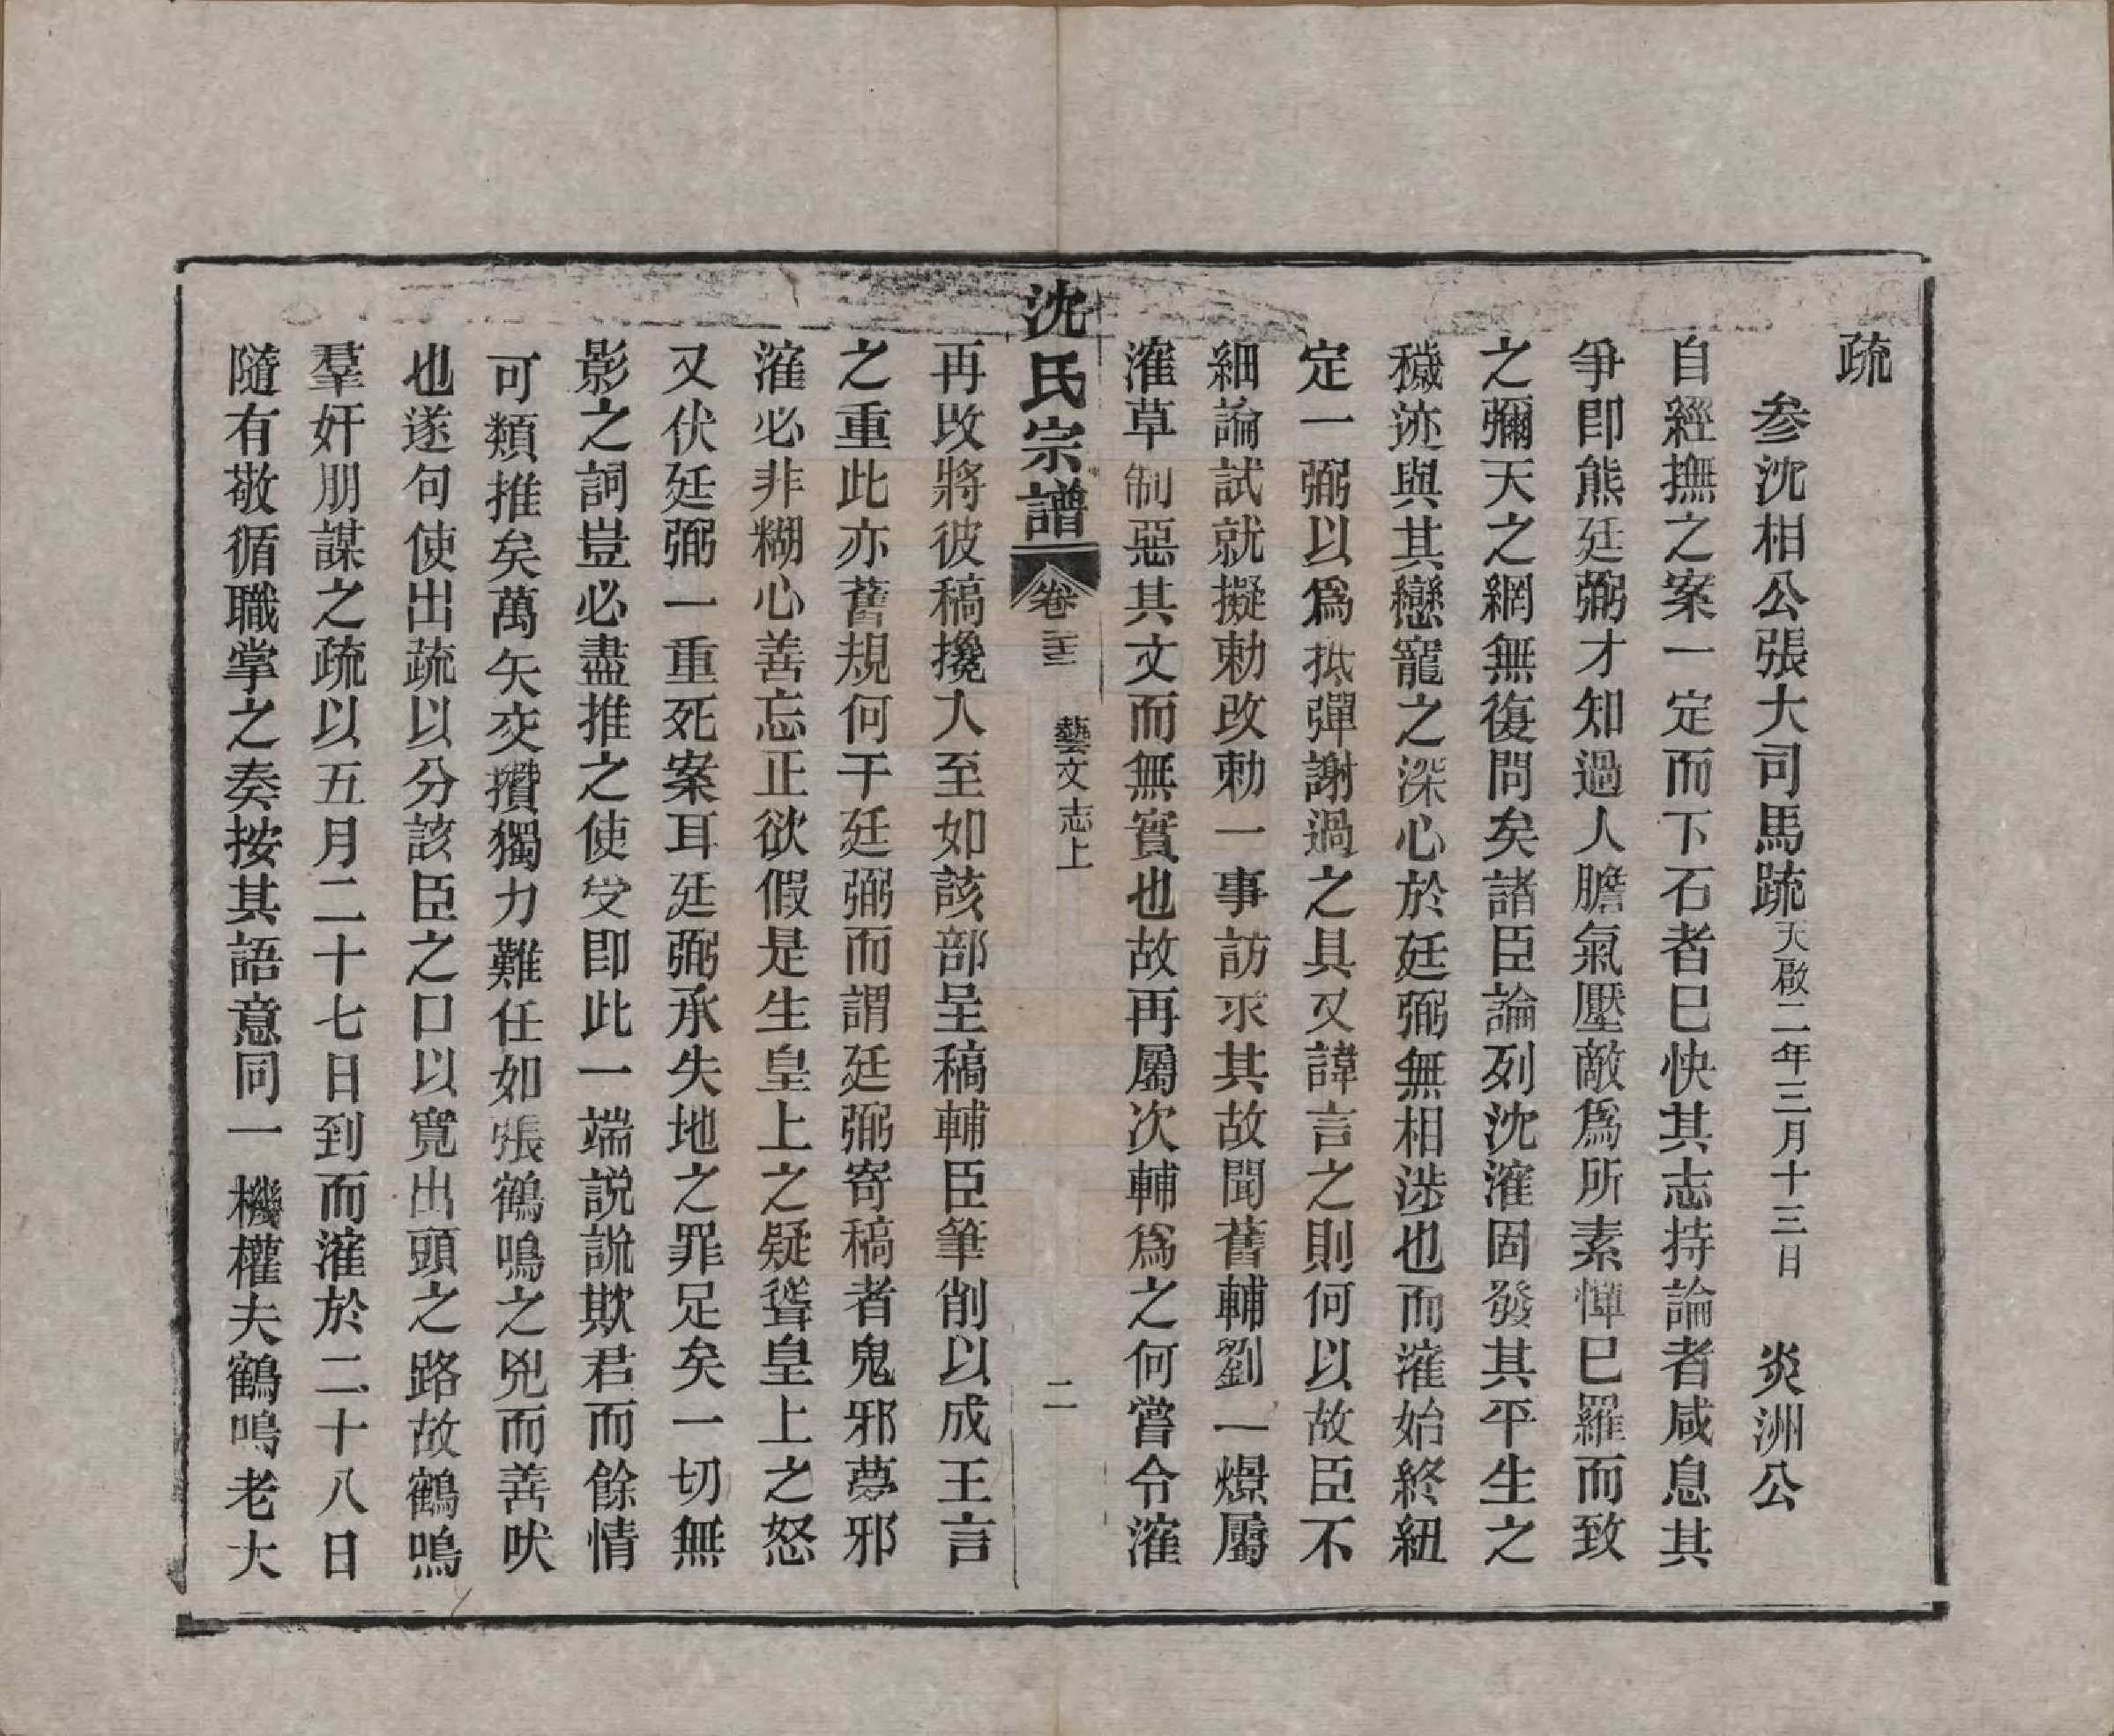 疏
參沈相公張大司馬疏天啟二年三月十三日 炎洲公
自經撫之案一定而下石者已快其志持論者咸息其
爭卽熊廷弼才知過人膽氣壓敵爲所素憚巳羅而致
之彌天之網無復問矣諸臣論列沈㴶固發其平生之
穢迹與其戀寵之深心於廷弼無相涉也而㴶始終紐
定一弼以爲抵彈謝過之具又諱言之則何以故臣不
細論試就擬勅改勅一事訪求其故聞舊輔劉一燝屬
㴶草制惡其文而無實也故再屬次輔爲之何嘗令㴶
沈氏宗譜 卷 藝文志上 二
再改將彼稿攙入至如該部呈稿輔臣筆削以成王言
之重此亦舊規何干廷弼而謂廷弼寄稿者鬼邪夢邪
㴶必非糊心善忘正欲假是生皇上之疑聳皇上之怒
又伏廷弼一重死案耳廷弼承失地之罪足矣一切無
影之詞豈必盡推之使受卽此一端説謊欺君而餘情
可類推矣萬矢交攢獨力難任如張鶴鳴之兇而善吠
也遂句使出疏以分該臣之口以寬出頭之路故鶴鳴
羣奸朋謀之疏以五月二十七日到而㴶於二十八日
隨有敬循職掌之奏按其語意同一機權夫鶴鳴老大